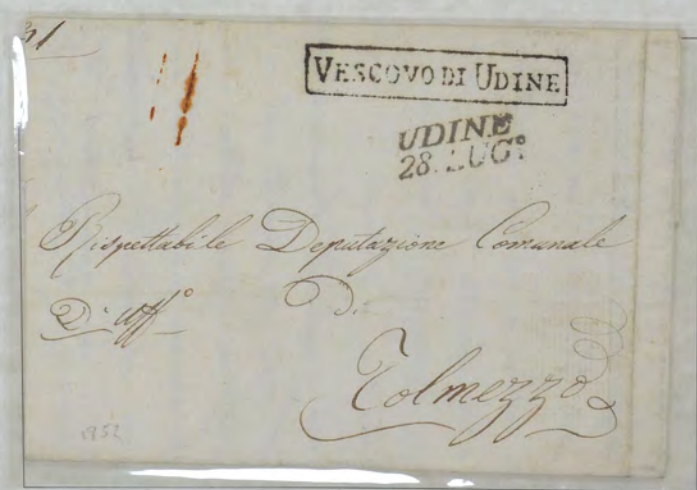 31
VESCOVO DI UDINE
UDINE
28. LUG°
Rispettabile Deputazione Comunale
D'Uff° Di
Tolmezzo
1852